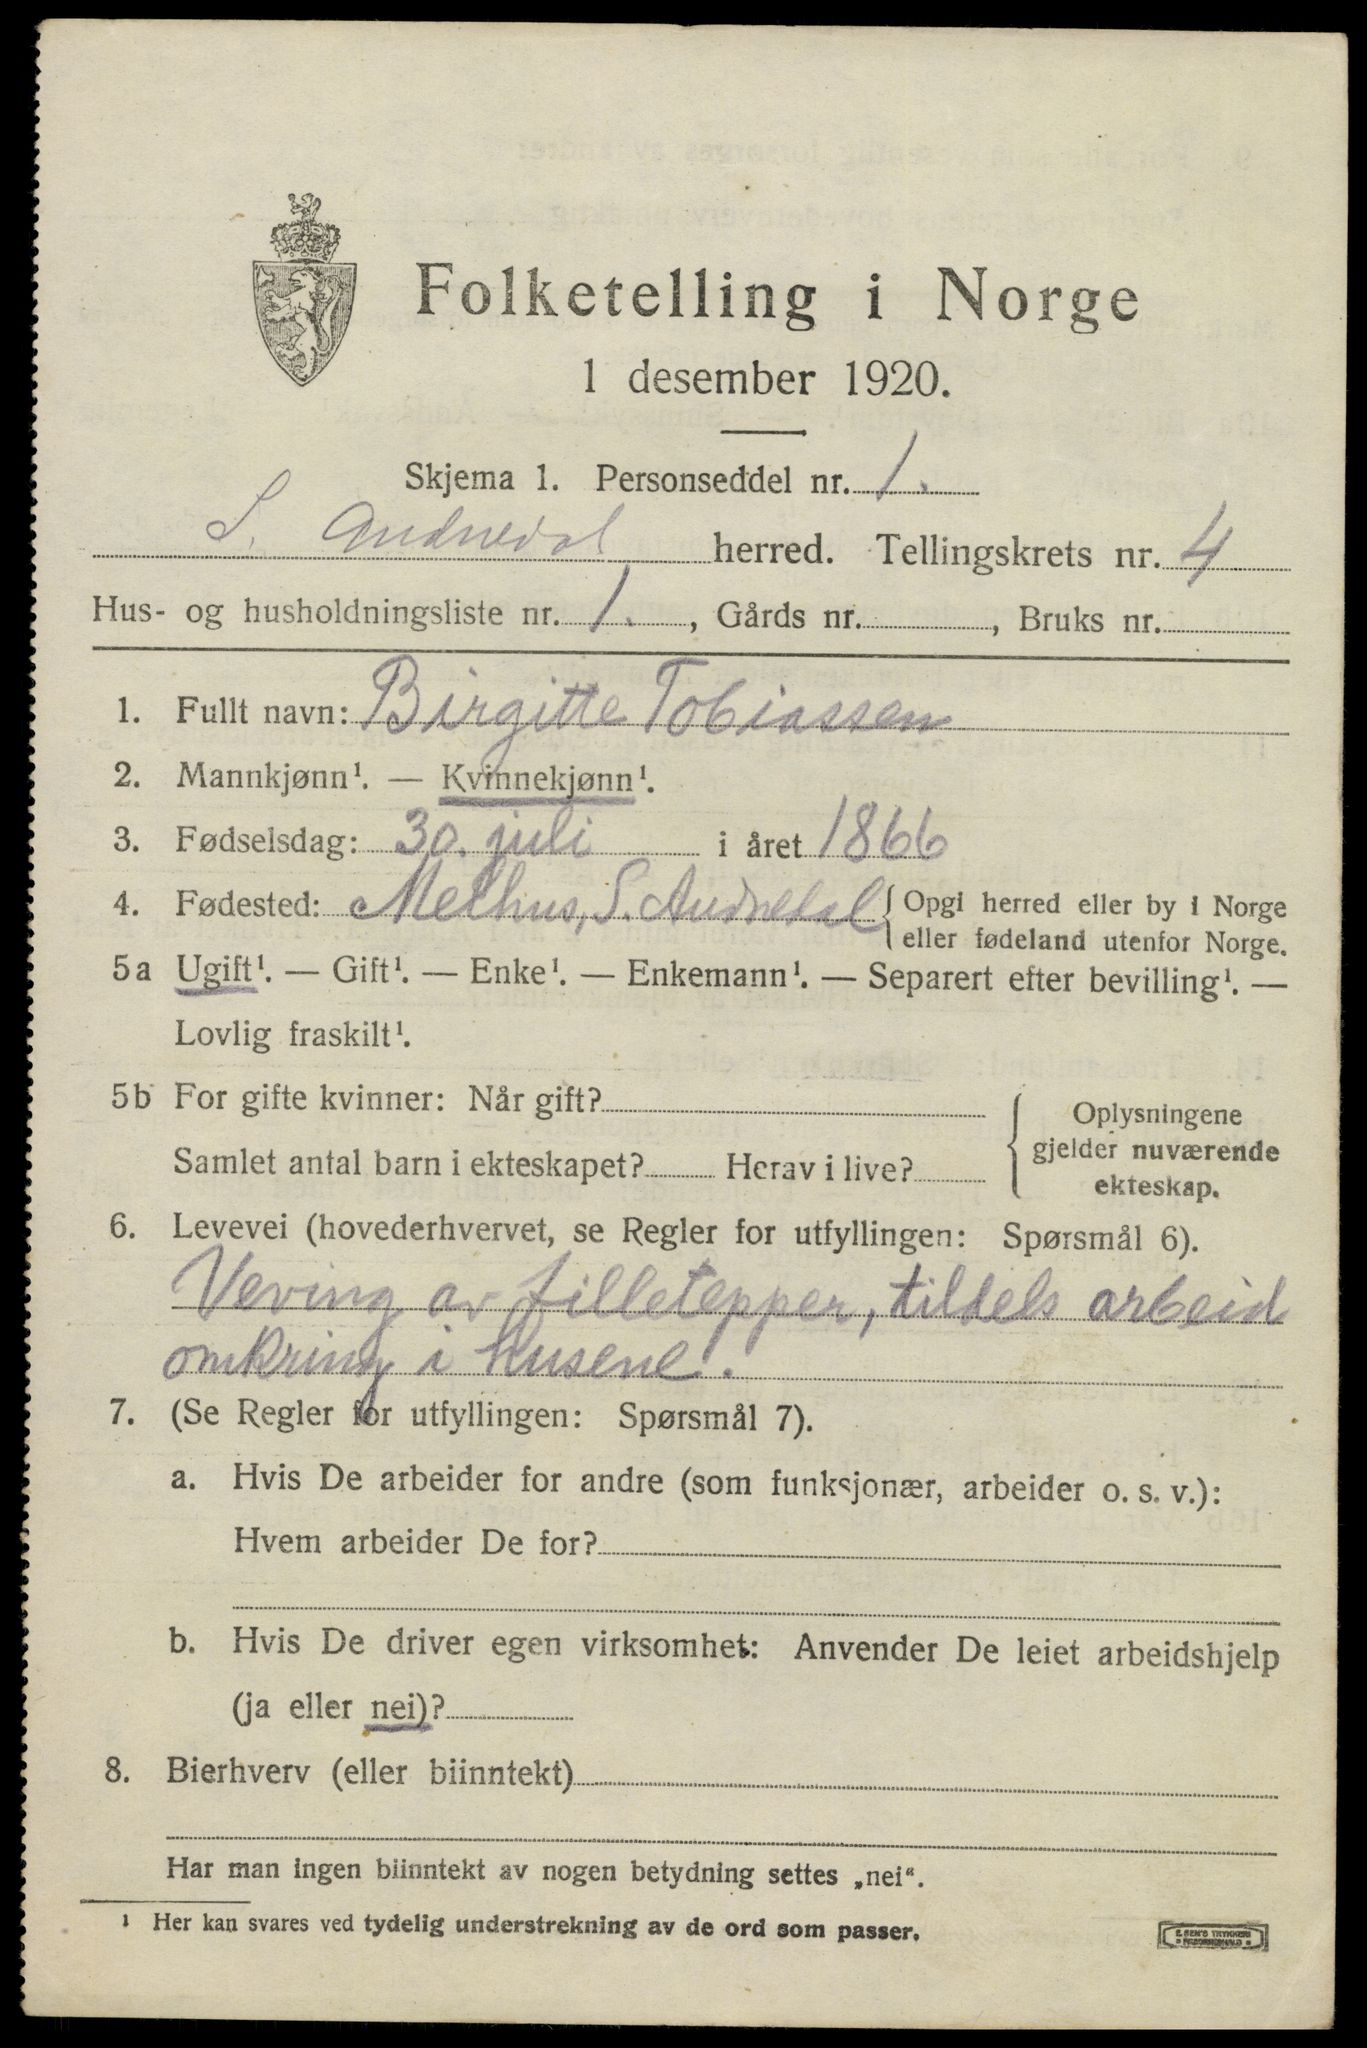 Folketelling i Norge
1 desember 1920.
Skjema 1. Personseddel nr. 1.
S. Audnedal herred. Tellingskrets nr. 4
Hus- og husholdningsliste nr. 1., Gårds nr. , Bruks nr.
1. Fullt navn: Birgitte Tobiassen
2. Mannkjønn¹. — Kvinnekjønn¹.
3. Fødselsdag: 30. juli i året 1866
4. Fødested: Melhus, S. Audnedal { Opgi herred eller by i Norge
eller fødeland utenfor Norge.
5a Ugift¹. — Gift¹. — Enke¹. — Enkemann¹. — Separert efter bevilling¹. —
Lovlig fraskilt¹.
5b For gifte kvinner: Når gift?
Samlet antal barn i ekteskapet? Herav i live?
Oplysningene
gjelder nuværende
ekteskap.
6. Levevei (hovederhvervet, se Regler for utfyllingen: Spørsmål 6).
Veving av filletepper, tildels arbeid
omkring i husene.
7. (Se Regler for utfyllingen: Spørsmål 7).
a. Hvis De arbeider for andre (som funksjonær, arbeider o. s. v.):
Hvem arbeider De for?
b. Hvis De driver egen virksomhet: Anvender De leiet arbeidshjelp
(ja eller nei)?
8. Bierhverv (eller biinntekt)
Har man ingen biinntekt av nogen betydning settes „nei“.
¹ Her kan svares ved tydelig understrekning av de ord som passer.